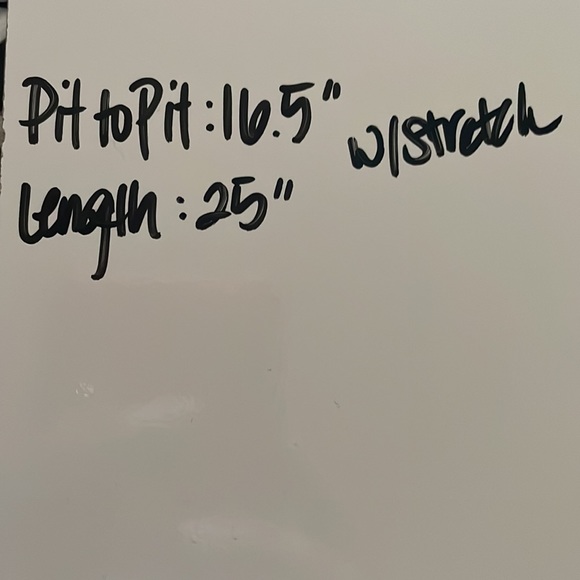 Pit to Pit : 16.5" w/stretch
Length : 25"